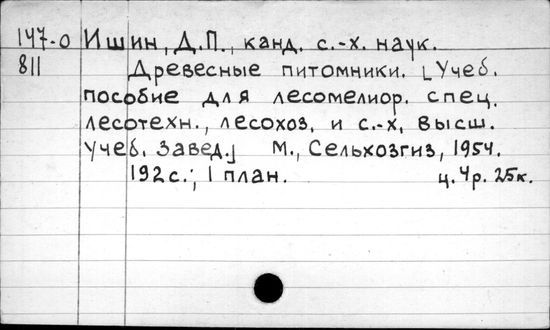 147-0 Ишин, Д.П., канд. с.-х. наук.
811 Древесные питомники. [Учеб.
пособие для лесомелиор. спец.
лесотехн., лесохоз. и с.-х. высш.
учеб. завед.] М., Сельхозгиз, 1954.
192 с.; 1 план. ц. 4р. 25к.